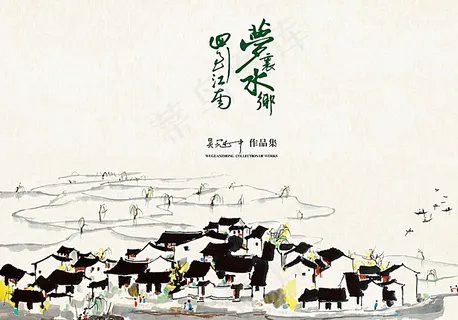 夢裏水鄉
江南
吴冠中 作品集
WUGUANZHONG COLLECTION OF WORKS